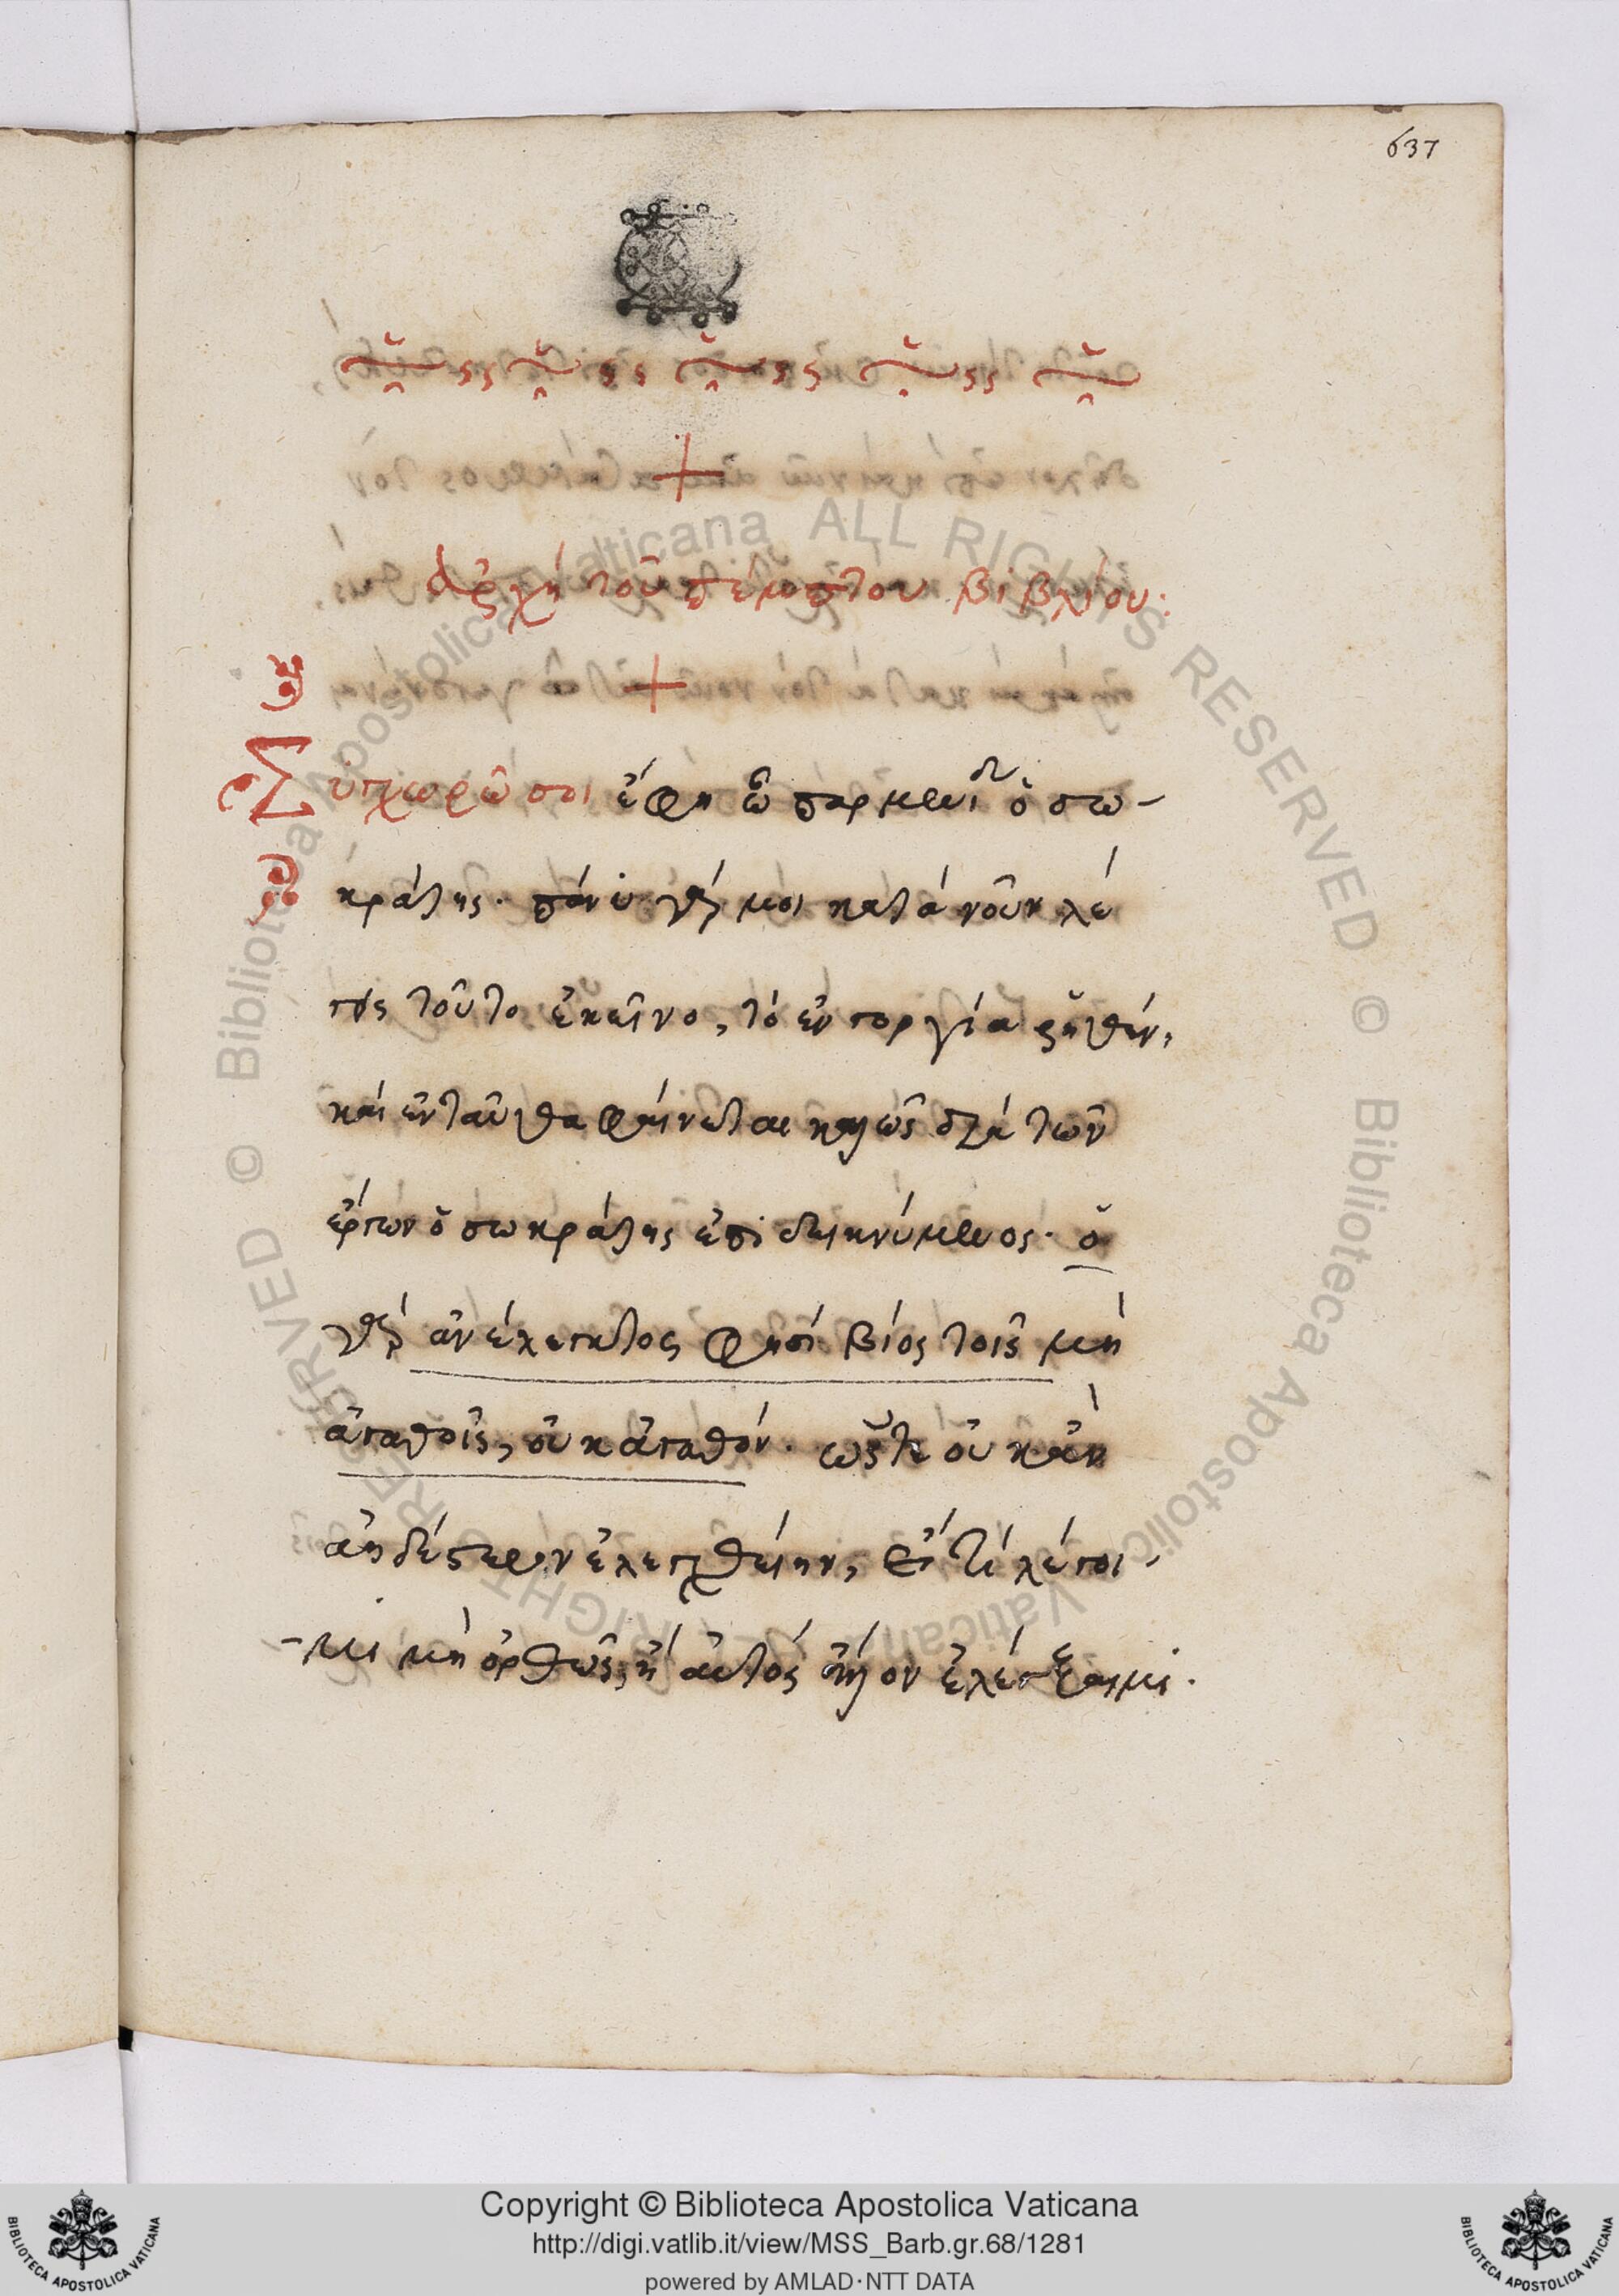 637
ἀρχὴ τοῦ πέμπτου βιβλίου:
Συγχωρῶ σοι ἔφη ὦ παρμενίδη ὁ σω-
κράτης. πάνυ γάρ μοι κατὰ νοῦν λέ
γεις τοῦτο ἐκεῖνο, τὸ ἐν γοργία ῥηθὲν,
καὶ ἐνταῦθα φαίνεται καλῶς διὰ τῶν
ἔργων ὁ σωκράτης ἐπιδεικνύμενος. ὁ
γὰρ ἀνέλεγκτος φησὶ βίος τοῖς μὴ
ἀγαθοῖς, οὐκ ἀγαθόν. ὥστε οὐκ ἂν
ἀηδέστερον ἐλεγχθείην, εἴ τι λέγοι-
-μι μὴ ὀρθῶς, ἢ αὐτὸς ἄλλον ἐλέγξαιμι.
Copyright © Biblioteca Apostolica Vaticana
http://digi.vatlib.it/view/MSS_Barb.gr.68/1281
powered by AMLAD·NTT DATA
BIBLIOTECA APOSTOLICA VATICANA
BIBLIOTECA APOSTOLICA VATICANA
© Biblioteca Apostolica Vaticana ALL RIGHTS RESERVED © Biblioteca Apostolica Vaticana ALL RIGHTS RESERVED